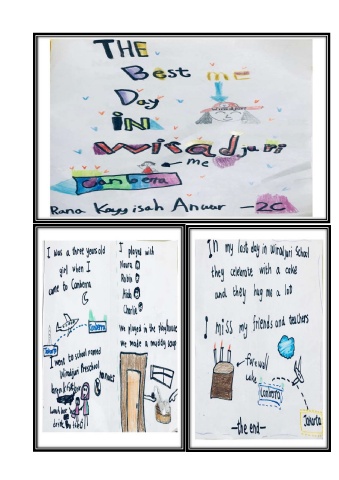 THE
Best me
Day
in
wiradjuri
me
Canberra
Rana Kayyisah Anwar - 2C
I was a three years old
girl when I
came to Canberra
Canberra
Jakarta
I went to school named
Wiradjuri Preschool
I played with
Naura
Robin
Aida
Charlie
we played in the playhouse
we made a muddy soup
In my last day in Wiradjuri School
they celebrate with a cake
and they hug me a lot
I miss my friends and teachers
farewell
cake
Canberra
Jakarta
-the end-